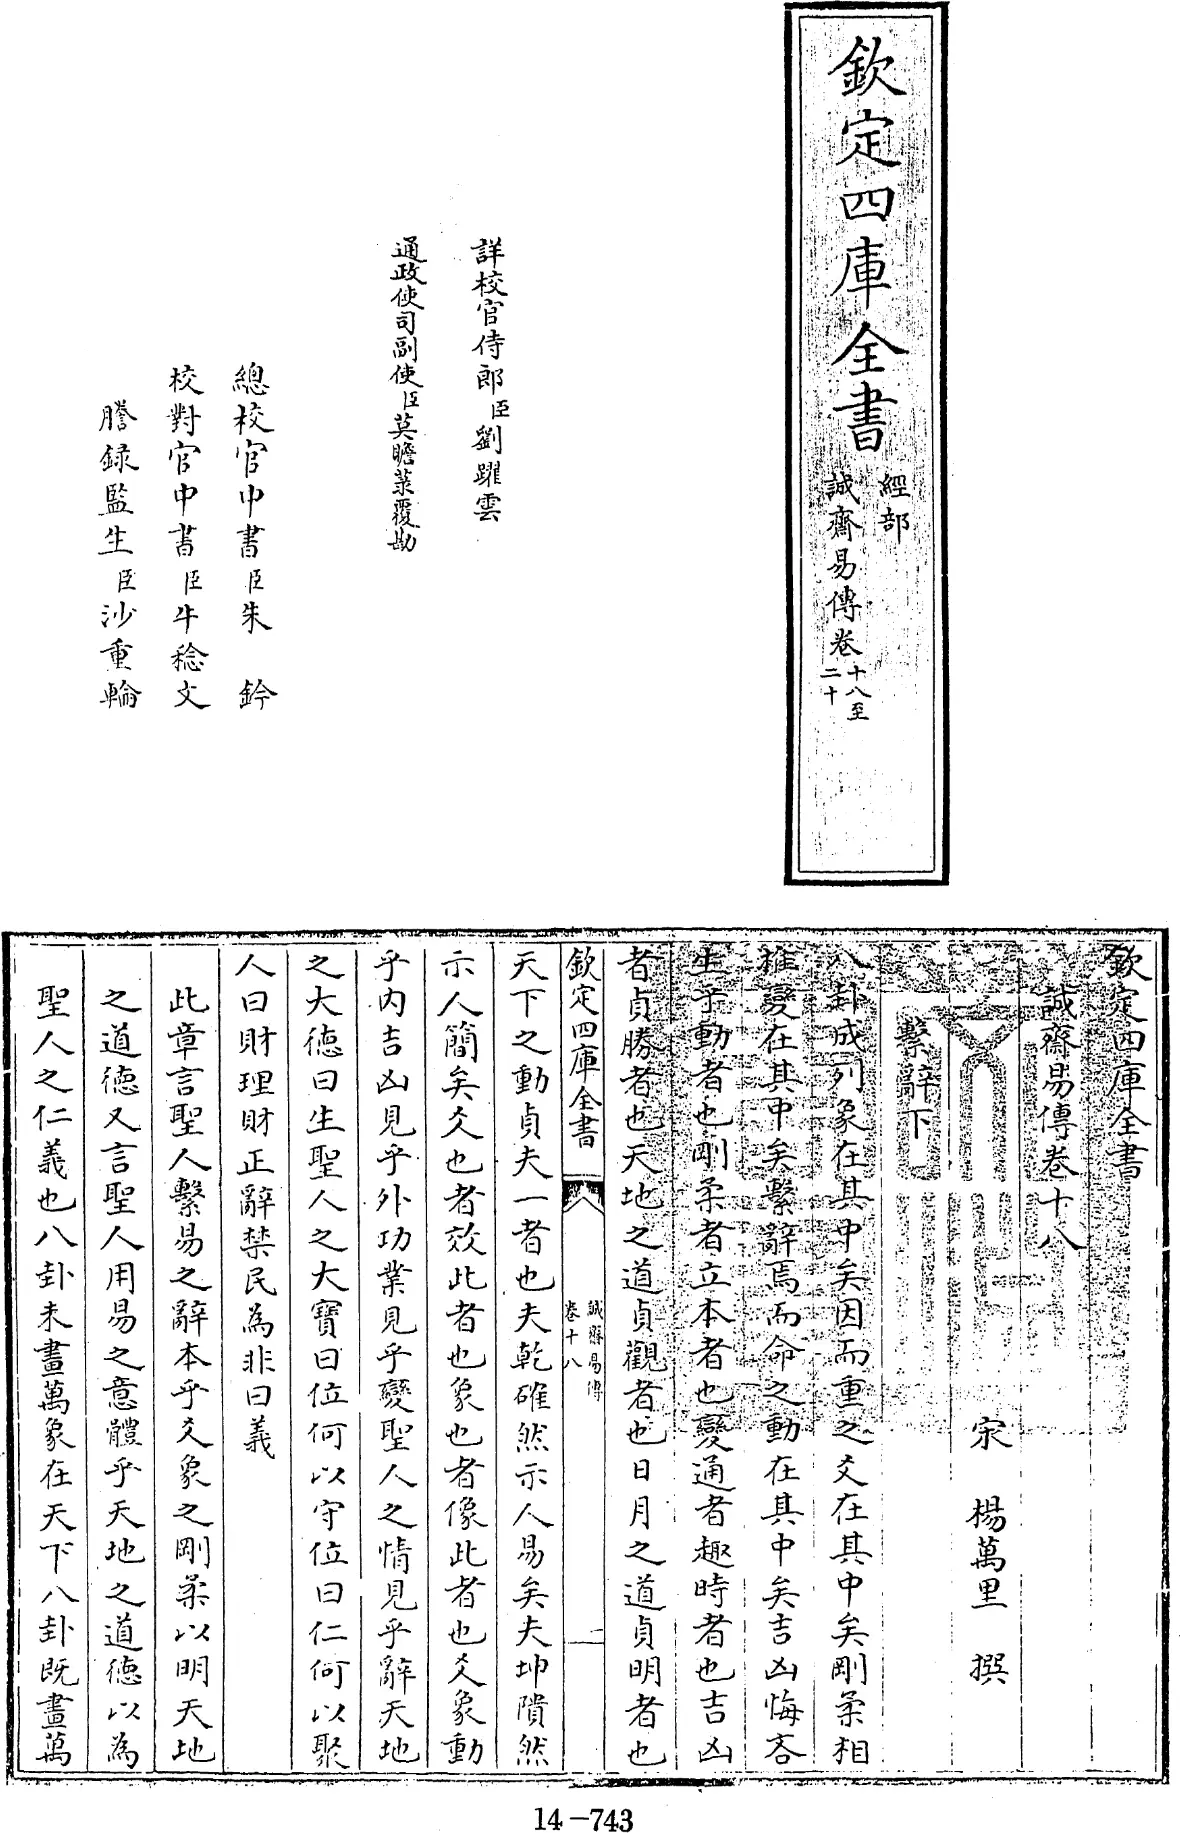 欽定四庫全書
經部
誠齋易傳卷十八至二十
詳校官侍郎臣劉躍雲
通政使司副使臣莫瞻菉覆勘
總校官中書臣朱 鈐
校對官中書臣牛稔文
謄錄監生臣沙重輪
欽定四庫全書
誠齋易傳卷十八
宋 楊萬里 撰
繫辭下
八卦成列象在其中矣因而重之爻在其中矣剛柔相
推變在其中矣繫辭焉而命之動在其中矣吉凶悔吝
生乎動者也剛柔者立本者也變通者趣時者也吉凶
者貞勝者也天地之道貞觀者也日月之道貞明者也
欽定四庫全書
誠齋易傳
卷十八
一
天下之動貞夫一者也夫乾確然示人易矣夫坤隤然
示人簡矣爻也者效此者也象也者像此者也爻象動
乎內吉凶見乎外功業見乎變聖人之情見乎辭天地
之大德曰生聖人之大寶曰位何以守位曰仁何以聚
人曰財理財正辭禁民為非曰義
此章言聖人繫易之辭本乎爻象之剛柔以明天地
之道德又言聖人用易之意體乎天地之道德以為
聖人之仁義也八卦未畫萬象在天下八卦既畫萬
14-743